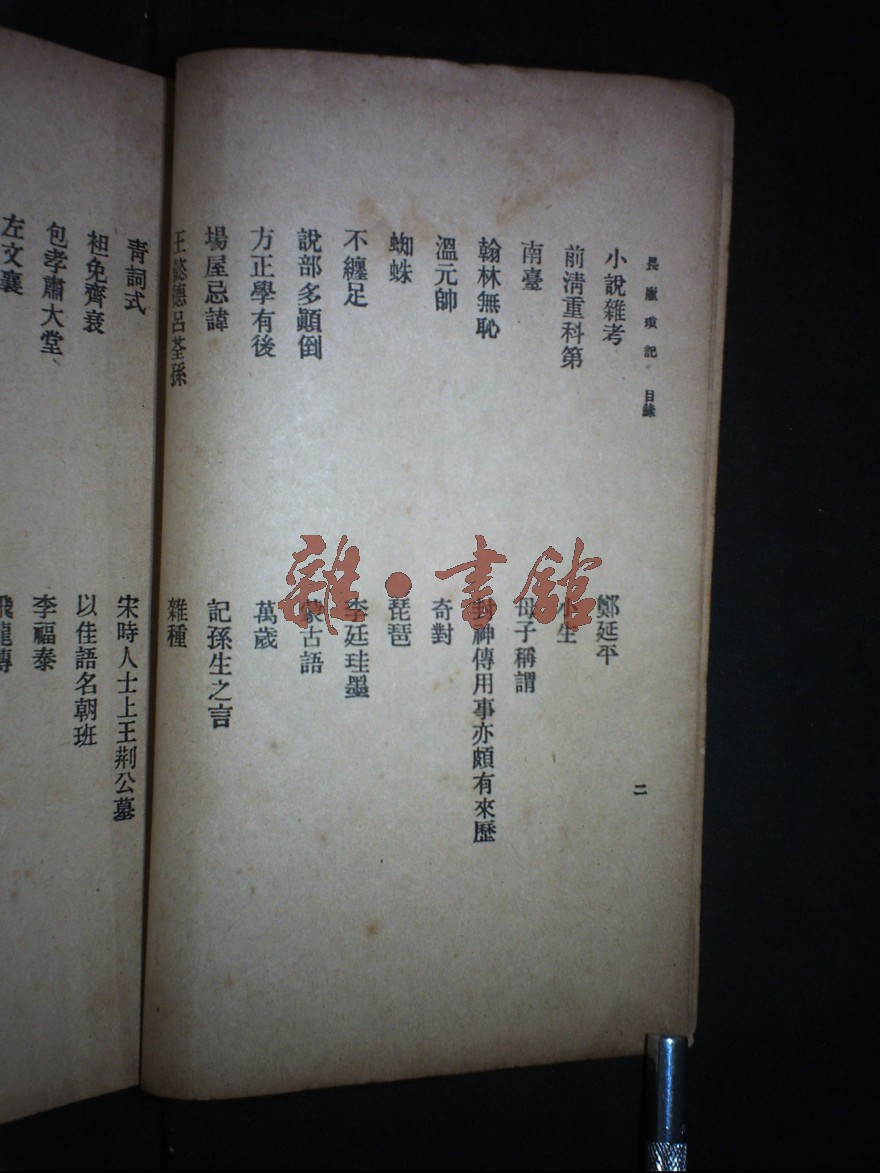 畏廬瑣記 目錄
二
小說雜考
鄭延平
前清重科第
小生
南臺
母子稱謂
翰林無恥
封神傳用事亦頗有來歷
溫元帥
奇對
蜘蛛
琵琶
不纏足
李廷珪墨
說部多顚倒
蒙古語
方正學有後
萬歲
場屋忌諱
記孫生之言
王懿德呂荃孫
雜種
青詞式
宋時人士上王荆公墓
袒免齊衰
以佳語名朝班
包孝肅大堂
李福泰
左文襄
飛龍傳
雜·書館